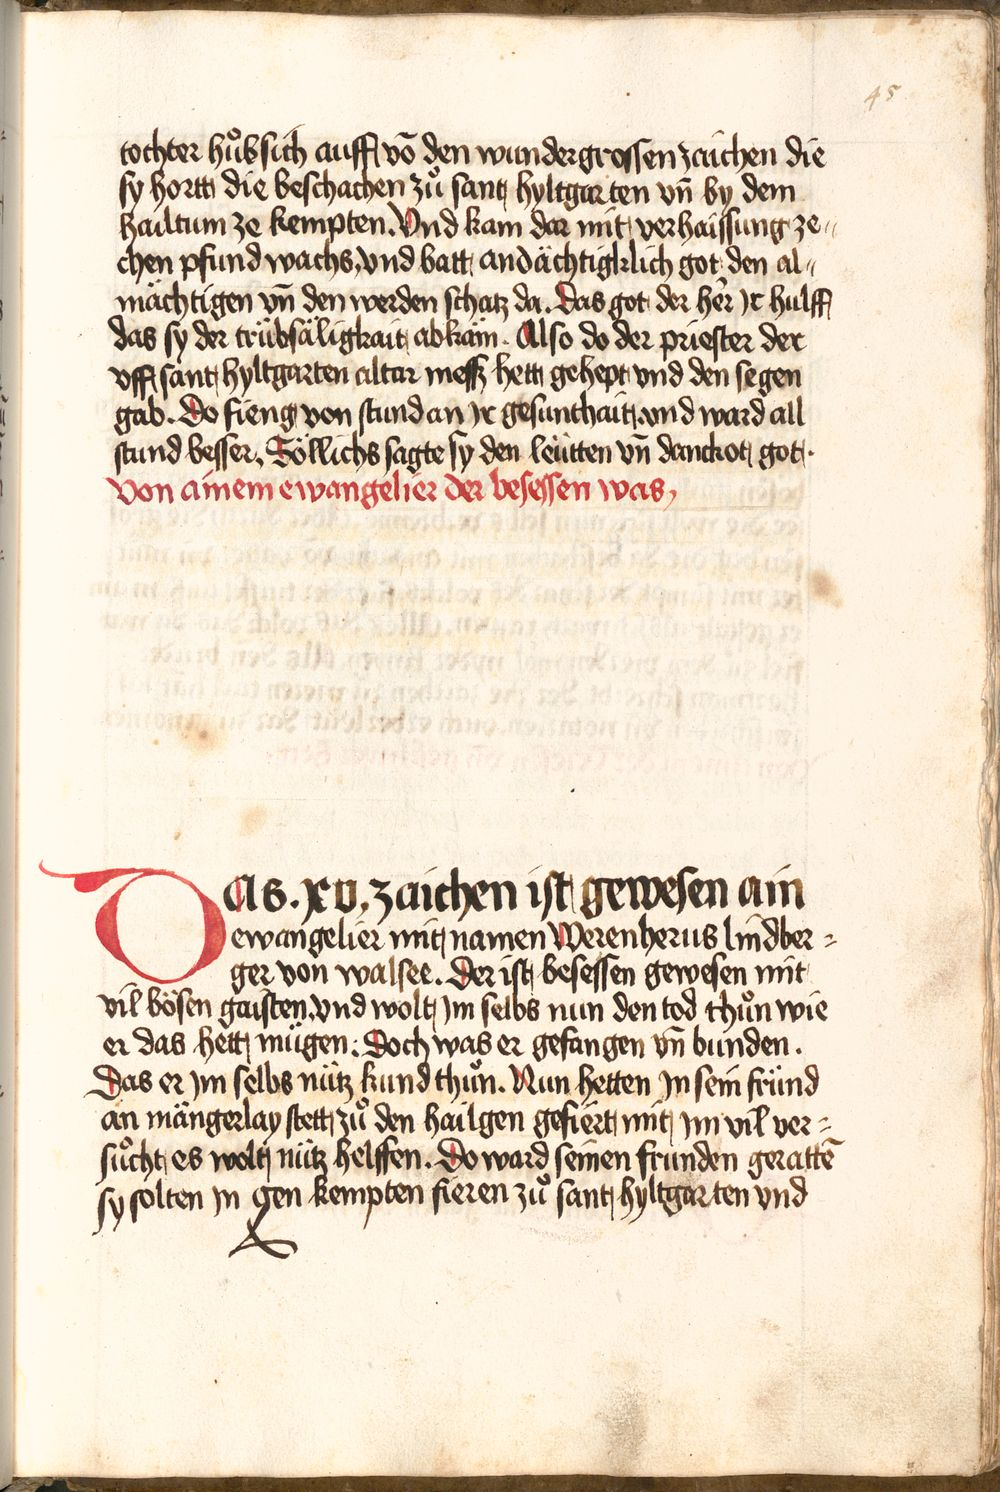 45
tochter hůb sich auff võ den wundergrossen zaichen die
sy hortt die beschachen zů sant hyltgarten vñ by dem
hailtum ze kempten. Vnd kam dar mit verhaissung ze〃
chen pfund wachs, vnd batt andächtigklich got den al〃
mächtigen vñ den werden schatz da. Das got der her̃ jr hulff
das sy der trübsäligkait abkäm. Also do der priester der
vff sant hyltgarten altar mess hett gehept vnd den segen
gab. Do fieng von stund an jr gesunthait, vnd ward all
stund besser, Söllichs sagte sy den leütten vñ danckot got.
Von ainem ewangelier der besessen was,
DAs. xv, zaichen ist gewesen ain
ewangelier mit namen Werenherus lindber=
ger von walsee. Der ist besessen gewesen mit
vil bösen gaisten, vnd wolt jm selbs nun den tod thůn wie
er das hett mügen: Doch was er gefangen vñ bunden.
Das er jm selbs nütz kund thůn. Nun hetten jn sein fründ
an mängerlay stett zů den hailgen gefiert mit jm vil ver=
sůcht es wolt nütz helffen. Do ward seinen frunden gerattẽ
sy solten jn gen kempten fieren zů sant hyltgarten vnd